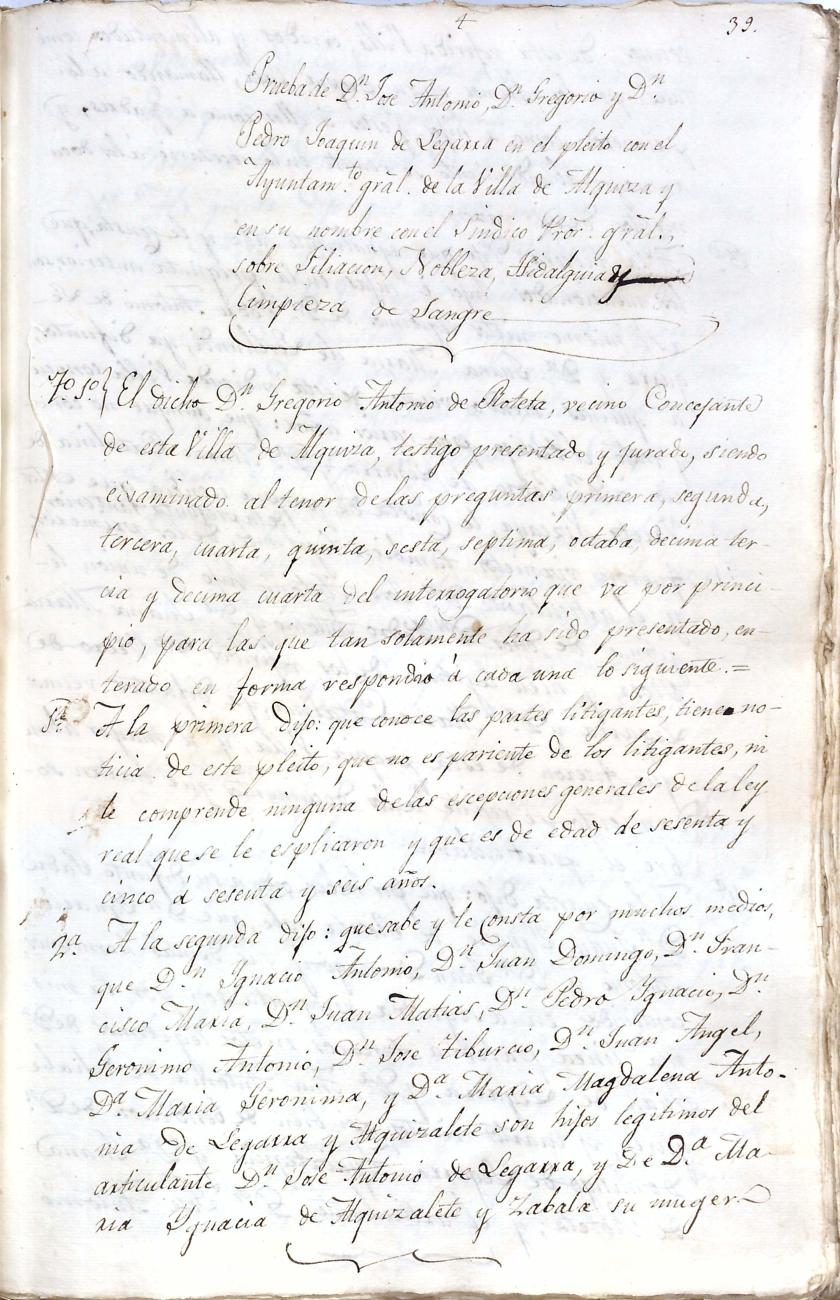 4
39.
Prueba de Dn. Jose Antonio, Dn. Gregorio y Dn.
Pedro Joaquin de Legarra en el pleito con el
Ayuntam.to gral. de la Villa de Alquiza y
en su nombre con el Sindico Pror. gral.,
sobre Filiacion, Nobleza, Hidalguia y
limpieza de Sangre
7.o s.o} El dicho Dn. Gregorio Antonio de Roteta, vecino Concejante
de esta Villa de Alquiza, testigo presentado y jurado, siendo
ecsaminado al tenor de las preguntas primera, segunda,
tercera, cuarta, quinta, sesta, septima, octaba, decima ter-
cia y decima cuarta del interrogatorio que va por princi-
pio, para las que tan solamente ha sido presentado, en-
terado en forma respondio á cada una lo siguiente.=
1.a A la primera dijo: que conoce las partes litigantes, tiene no-
ticia de este pleito, que no es pariente de los litigantes, ni
le comprende ninguna de las escepciones generales de la ley
real que se le esplicaron y que es de edad de sesenta y
cinco á sesenta y seis años.
2.a A la segunda dijo: que sabe y le consta por muchos medios,
que Dn. Ignacio Antonio, Dn. Juan Domingo, Dn. Fran-
cisco Maria, Dn. Juan Matias, Dn. Pedro Ygnacio, Dn.
Geronimo Antonio, Dn. Jose Tiburcio, Dn. Juan Angel,
Da. Maria Geronima, y Da. Maria Magdalena Anto-
nia de Legarra y Alquizalete son hijos legitimos del
articulante Dn. Jose Antonio de Legarra, y de Da. Ma-
ria Ygnacia de Alquizalete y Zabala su muger